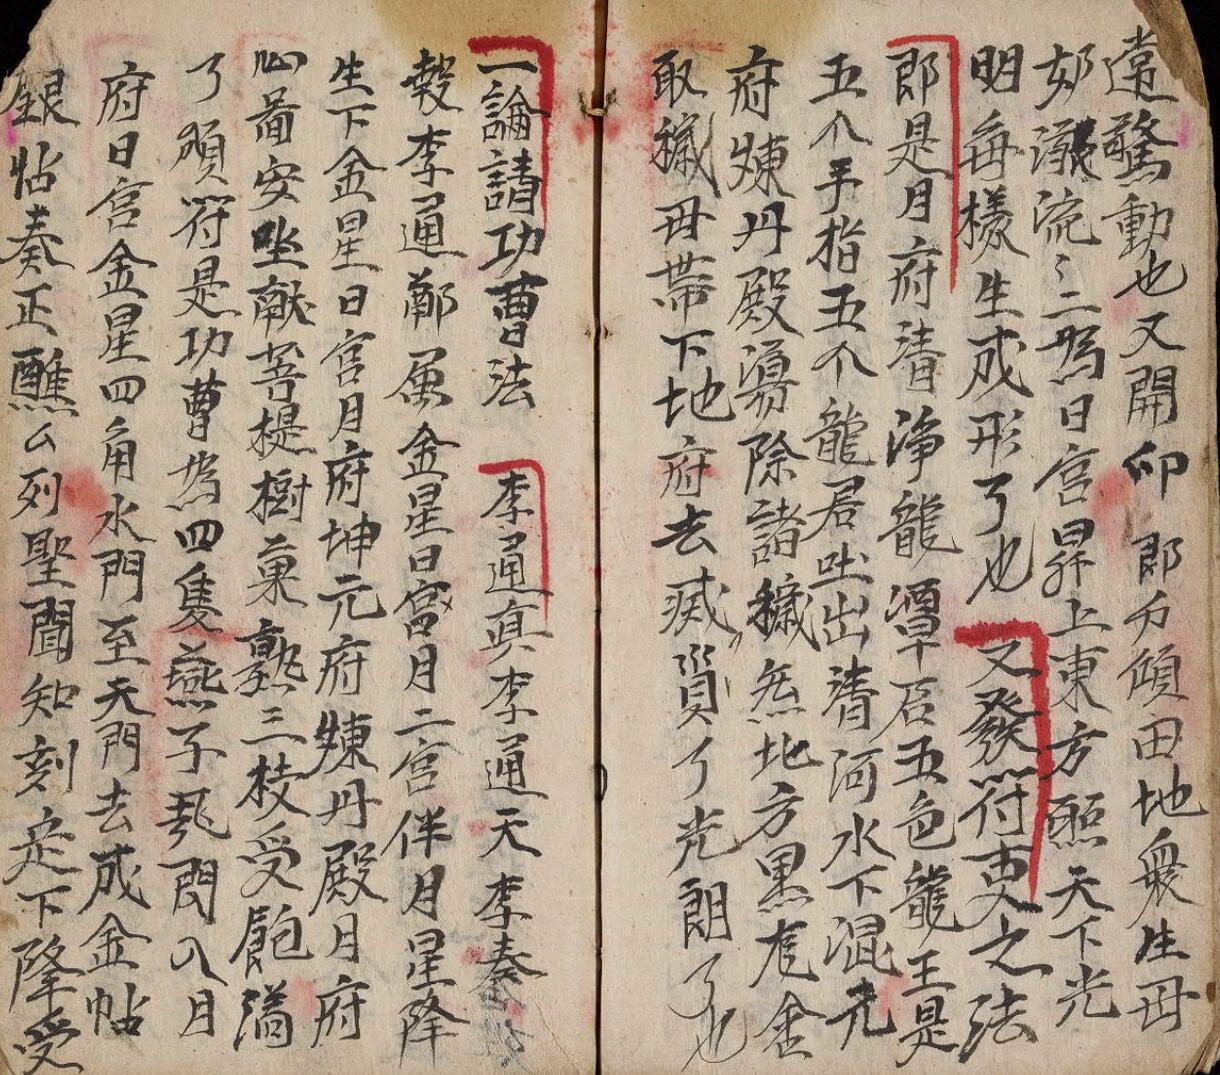 遠驚動也又開卯 郎力傾田地衆生毋
妳澱流〻二塢日宮昇上東方照天下光
明毎樣生成形了也 又發符吏之法
郎是月府清净龍潭石五色龍王是
五个手指五个龍君吐出清河水下混元
府煉丹殿蕩除諸穢炁北方黒虎金
取穢毋帶下地府去烕〃災貟了光朗了也
一論請功曹法 李通真李通天李奏
穀李通鄭属金星日宮月二宮伴月星降
生下金星日宮月府坤元府煉丹殿月府
心啚安坐献菩提樹菓熟三枝受飽滿
了煩符是功曹塢四隻燕子飛閃入月
府日宮金星四角水門至天門去成金帖
銀帖奏正醮厶列聖聞知刻定下降受